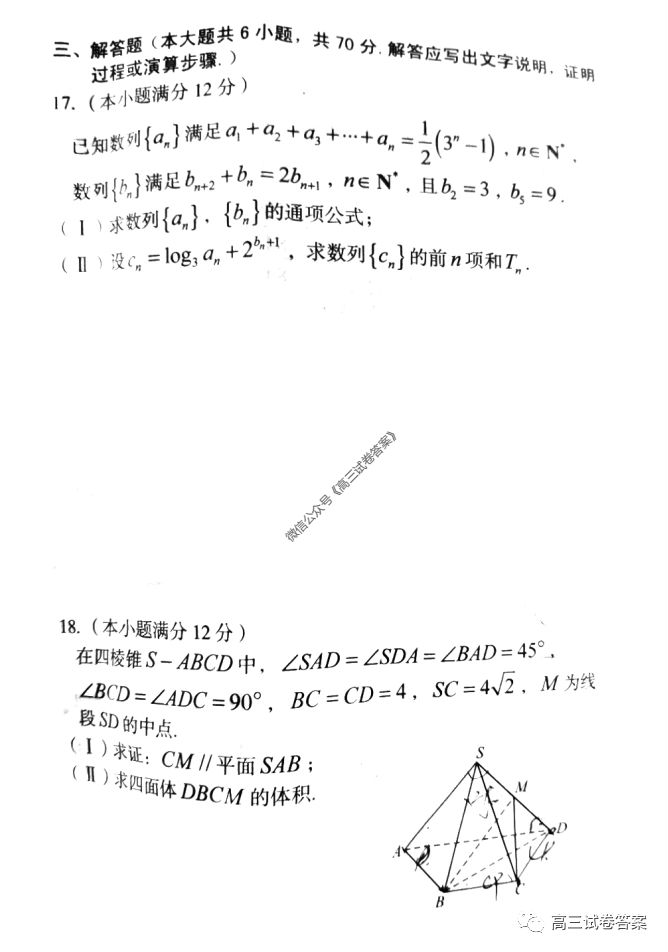 三、解答题（本大题共 6 小题，共 70 分. 解答应写出文字说明，证明
过程或演算步骤.）
17.（本小题满分 12 分）
已知数列{aₙ}满足 a₁ + a₂ + a₃ + ⋯ + aₙ = 1/2(3ⁿ − 1)，n∈N*，
数列{bₙ}满足 bₙ₊₂ + bₙ = 2bₙ₊₁，n∈N*，且 b₂ = 3，b₅ = 9.
（Ⅰ）求数列{aₙ}，{bₙ}的通项公式；
（Ⅱ）设 cₙ = log₃ aₙ + 2^(bₙ+1)，求数列{cₙ}的前 n 项和 Tₙ.
微信公众号《高三试卷答案》
18.（本小题满分 12 分）
在四棱锥 S − ABCD 中，∠SAD = ∠SDA = ∠BAD = 45°，
∠BCD = ∠ADC = 90°，BC = CD = 4，SC = 4√2，M 为线
段 SD 的中点.
（Ⅰ）求证：CM // 平面 SAB；
（Ⅱ）求四面体 DBCM 的体积.
S
M
A
D
B
C
高三试卷答案